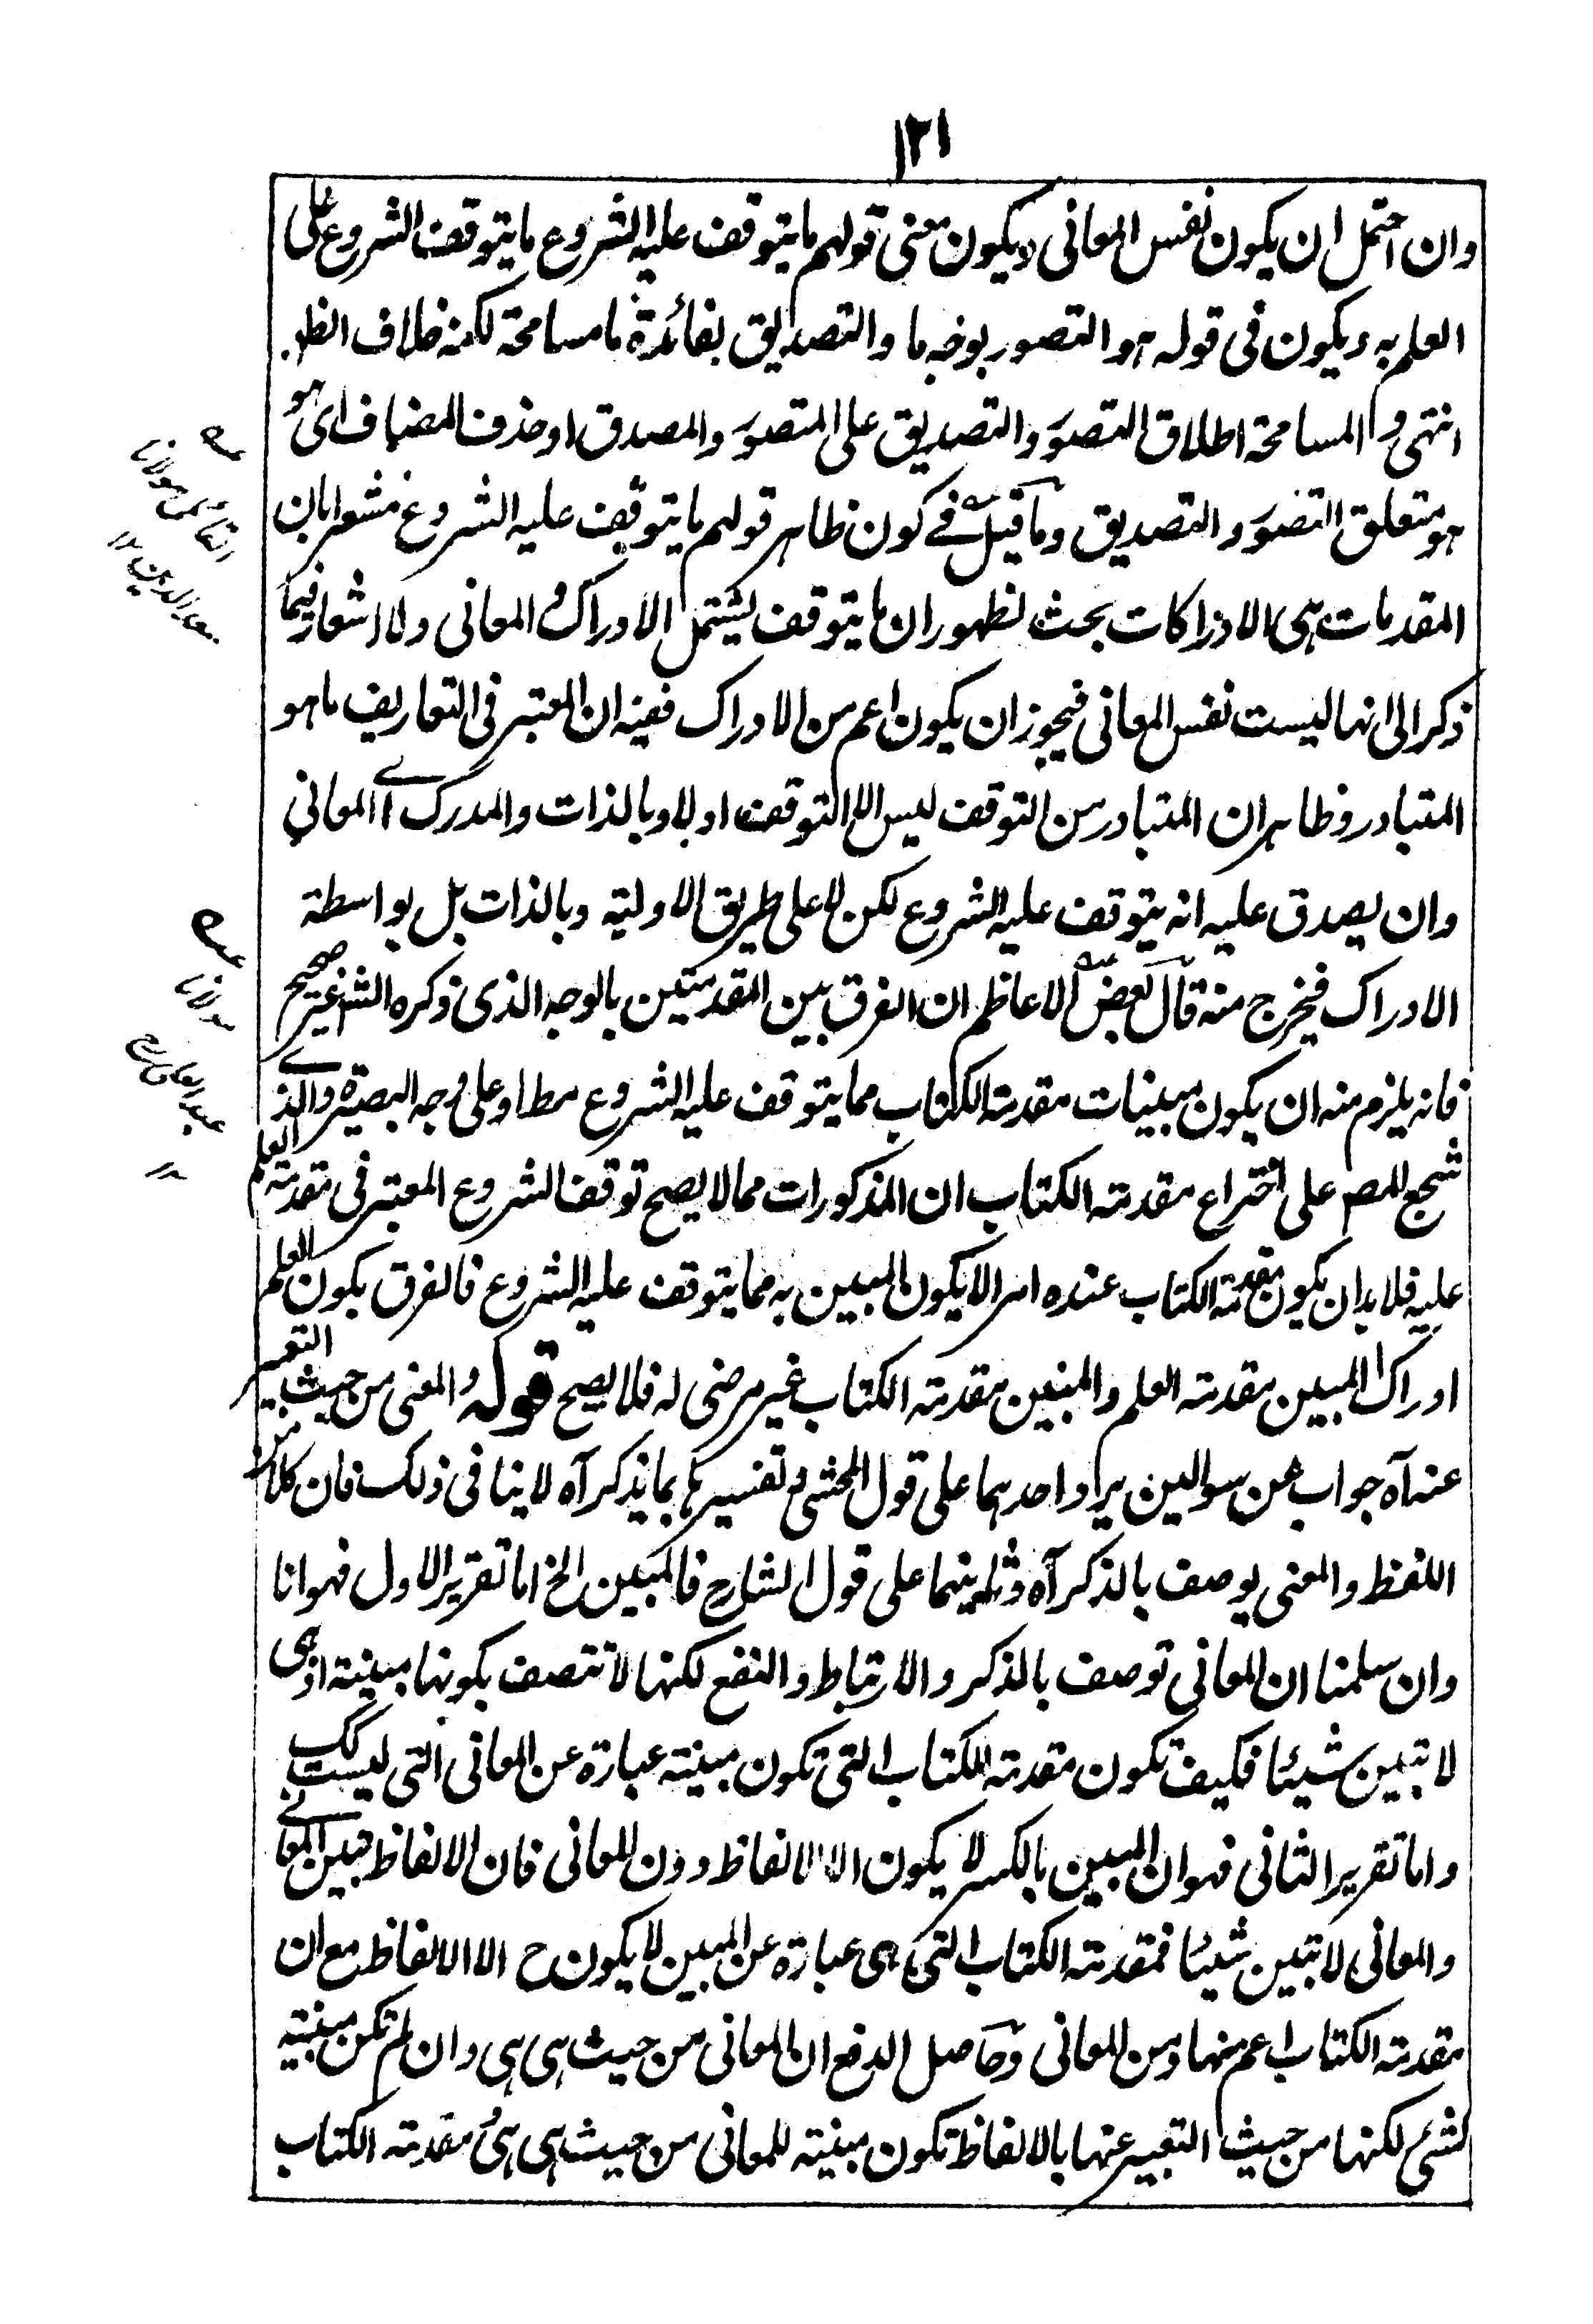 ١٢١
وان احتمل ان يكون نفس المعانى ويكون معنى قولهم ما يتوقف عليه الشروع ما يتوقف الشروع على
العلم به ويكون فى قوله هو التصور بوجه ما والتصديق بفائدة ما مسامحة لكنه خلاف الظ
انتهى والمسامحة اطلاق التصور والتصديق على المتصور والمصدق او حذف المضاف اى هو
هو متعلق التصور والتصديق وما قيل فى كون ظاهر قولهم ما يتوقف عليه الشروع مشعرا بان
المقدمات هى الادراكات بحث لظهور ان ما يتوقف يشتمل الادراك والمعانى ولا اشعار فيما
ذكر الى انها ليست نفس المعانى فيجوز ان يكون اعم من الادراك ففيه ان المعتبر فى التعاريف ما هو
المتبادر وظاهر ان المتبادر من التوقف ليس الا التوقف اولا وبالذات والمدرك اے المعانى
وان يصدق عليه انه يتوقف عليه الشروع لكن لا على طريق الاولية وبالذات بل بواسطة
الادراك فيخرج منه قال بعض الاعاظم ان الفرق بين المقدمتين بالوجه الذى ذكره الشم غير صحيح
فانه يلزم منه ان يكون مبينات مقدمة الكتاب مما يتوقف عليه الشروع مط او على وجه البصيرة والذے
شجع للمص على اختراع مقدمة الكتاب ان المذكورات مما لا يصح توقف الشروع المعتبر فى مقدمة العلم
عليه فلا بد ان يكون مقدمة الكتاب عنده امرا لا يكون المبين به مما يتوقف عليه الشروع فالفرق بكون العلم
ادراك المبين مقدمة العلم والمبين مقدمة الكتاب غير مرضى له فلا يصح قوله والمعنى من حيث التعبير
عنه آه جواب عن سوالين يراد احدهما على قول المحشى وتفسيرها بما يذكر آه لا ينافى ذلك فان كلا من
اللفظ والمعنى يوصف بالذكر آه وثانيهما على قول الشارح فالمبين الخ اما تقرير الاول فهو انا
وان سلمنا ان المعانى توصف بالذكر والارتباط والنفع لكنها لا تتصف بكونها مبينة اذ هى
لا تبين شيئا فكيف تكون مقدمة الكتاب التى تكون مبينة عبارة عن المعانى التى ليست كك
واما تقرير الثانى فهو ان المبين بالكسر لا يكون الا الالفاظ دون المعانى فان الالفاظ تبين المعانے
والمعانى لا تبين شيئا فمقدمة الكتاب التى هى عبارة عن المبين لا يكون ح الا الالفاظ مع ان
مقدمة الكتاب اعم منها ومن المعانى وحاصل الدفع ان المعانى من حيث هى هى وان لم تكن مبينة
لشئ لكنها من حيث التعبير عنها بالالفاظ تكون مبينة للمعانى من حيث هى هى مقدمة الكتاب
عـه
القائل مولانا
سعد الدين ١٢
عـه
مولانا
عبد العلى رح
١٢